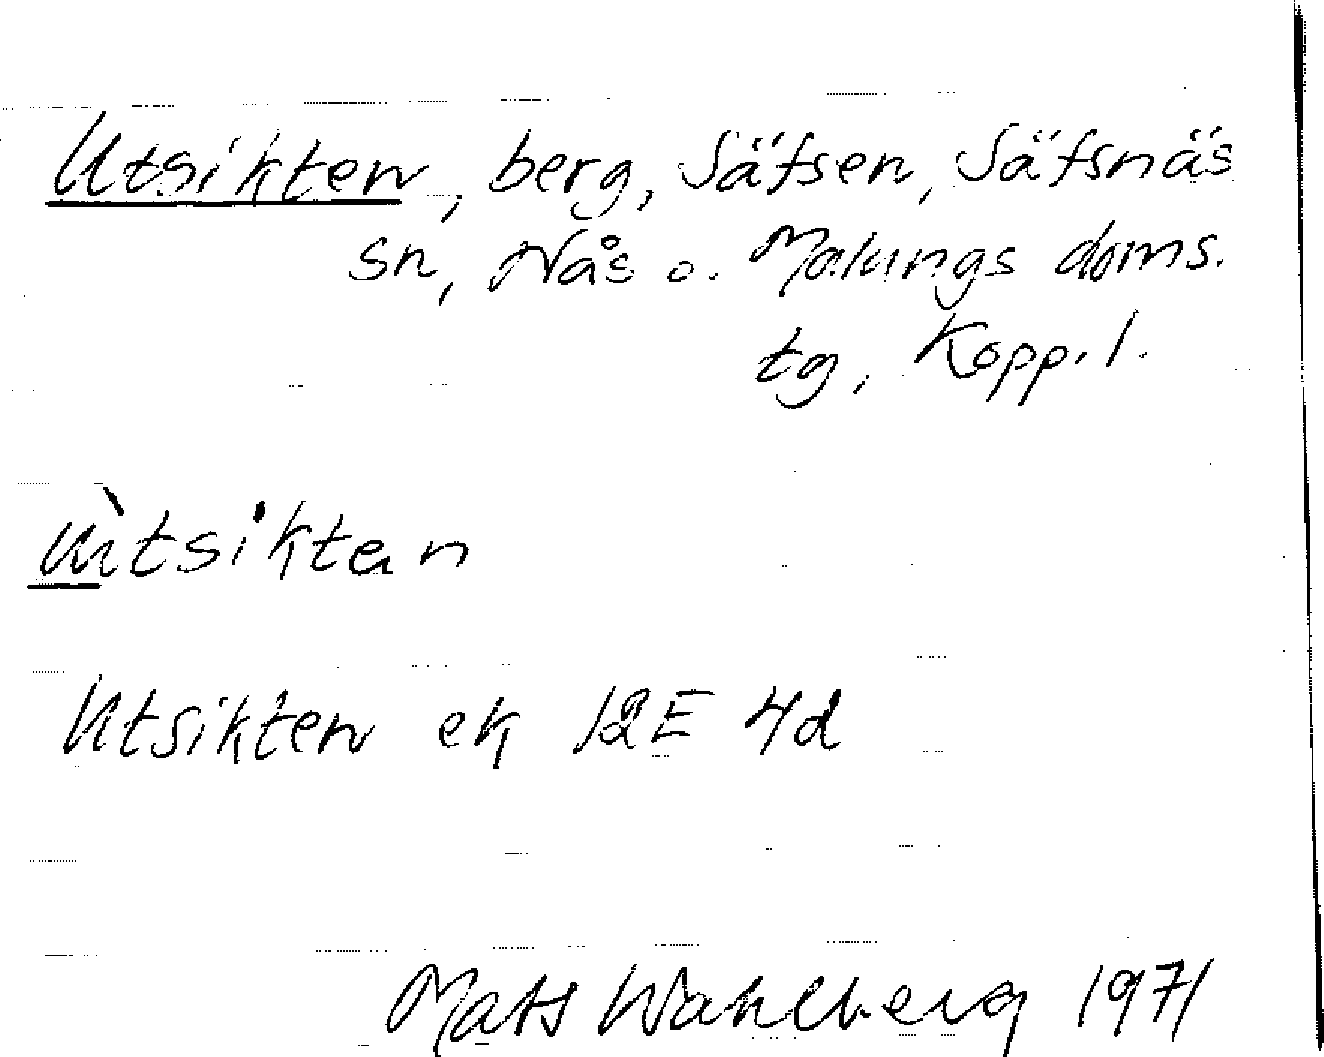 Utsikten, berg, Säfsen, Säfsnäs
sn, Nås o. Malungs doms.
tg, Kopp. l.
ùtsiktan
Utsikten ek 12E 4d
Mats Wahlberg 1971